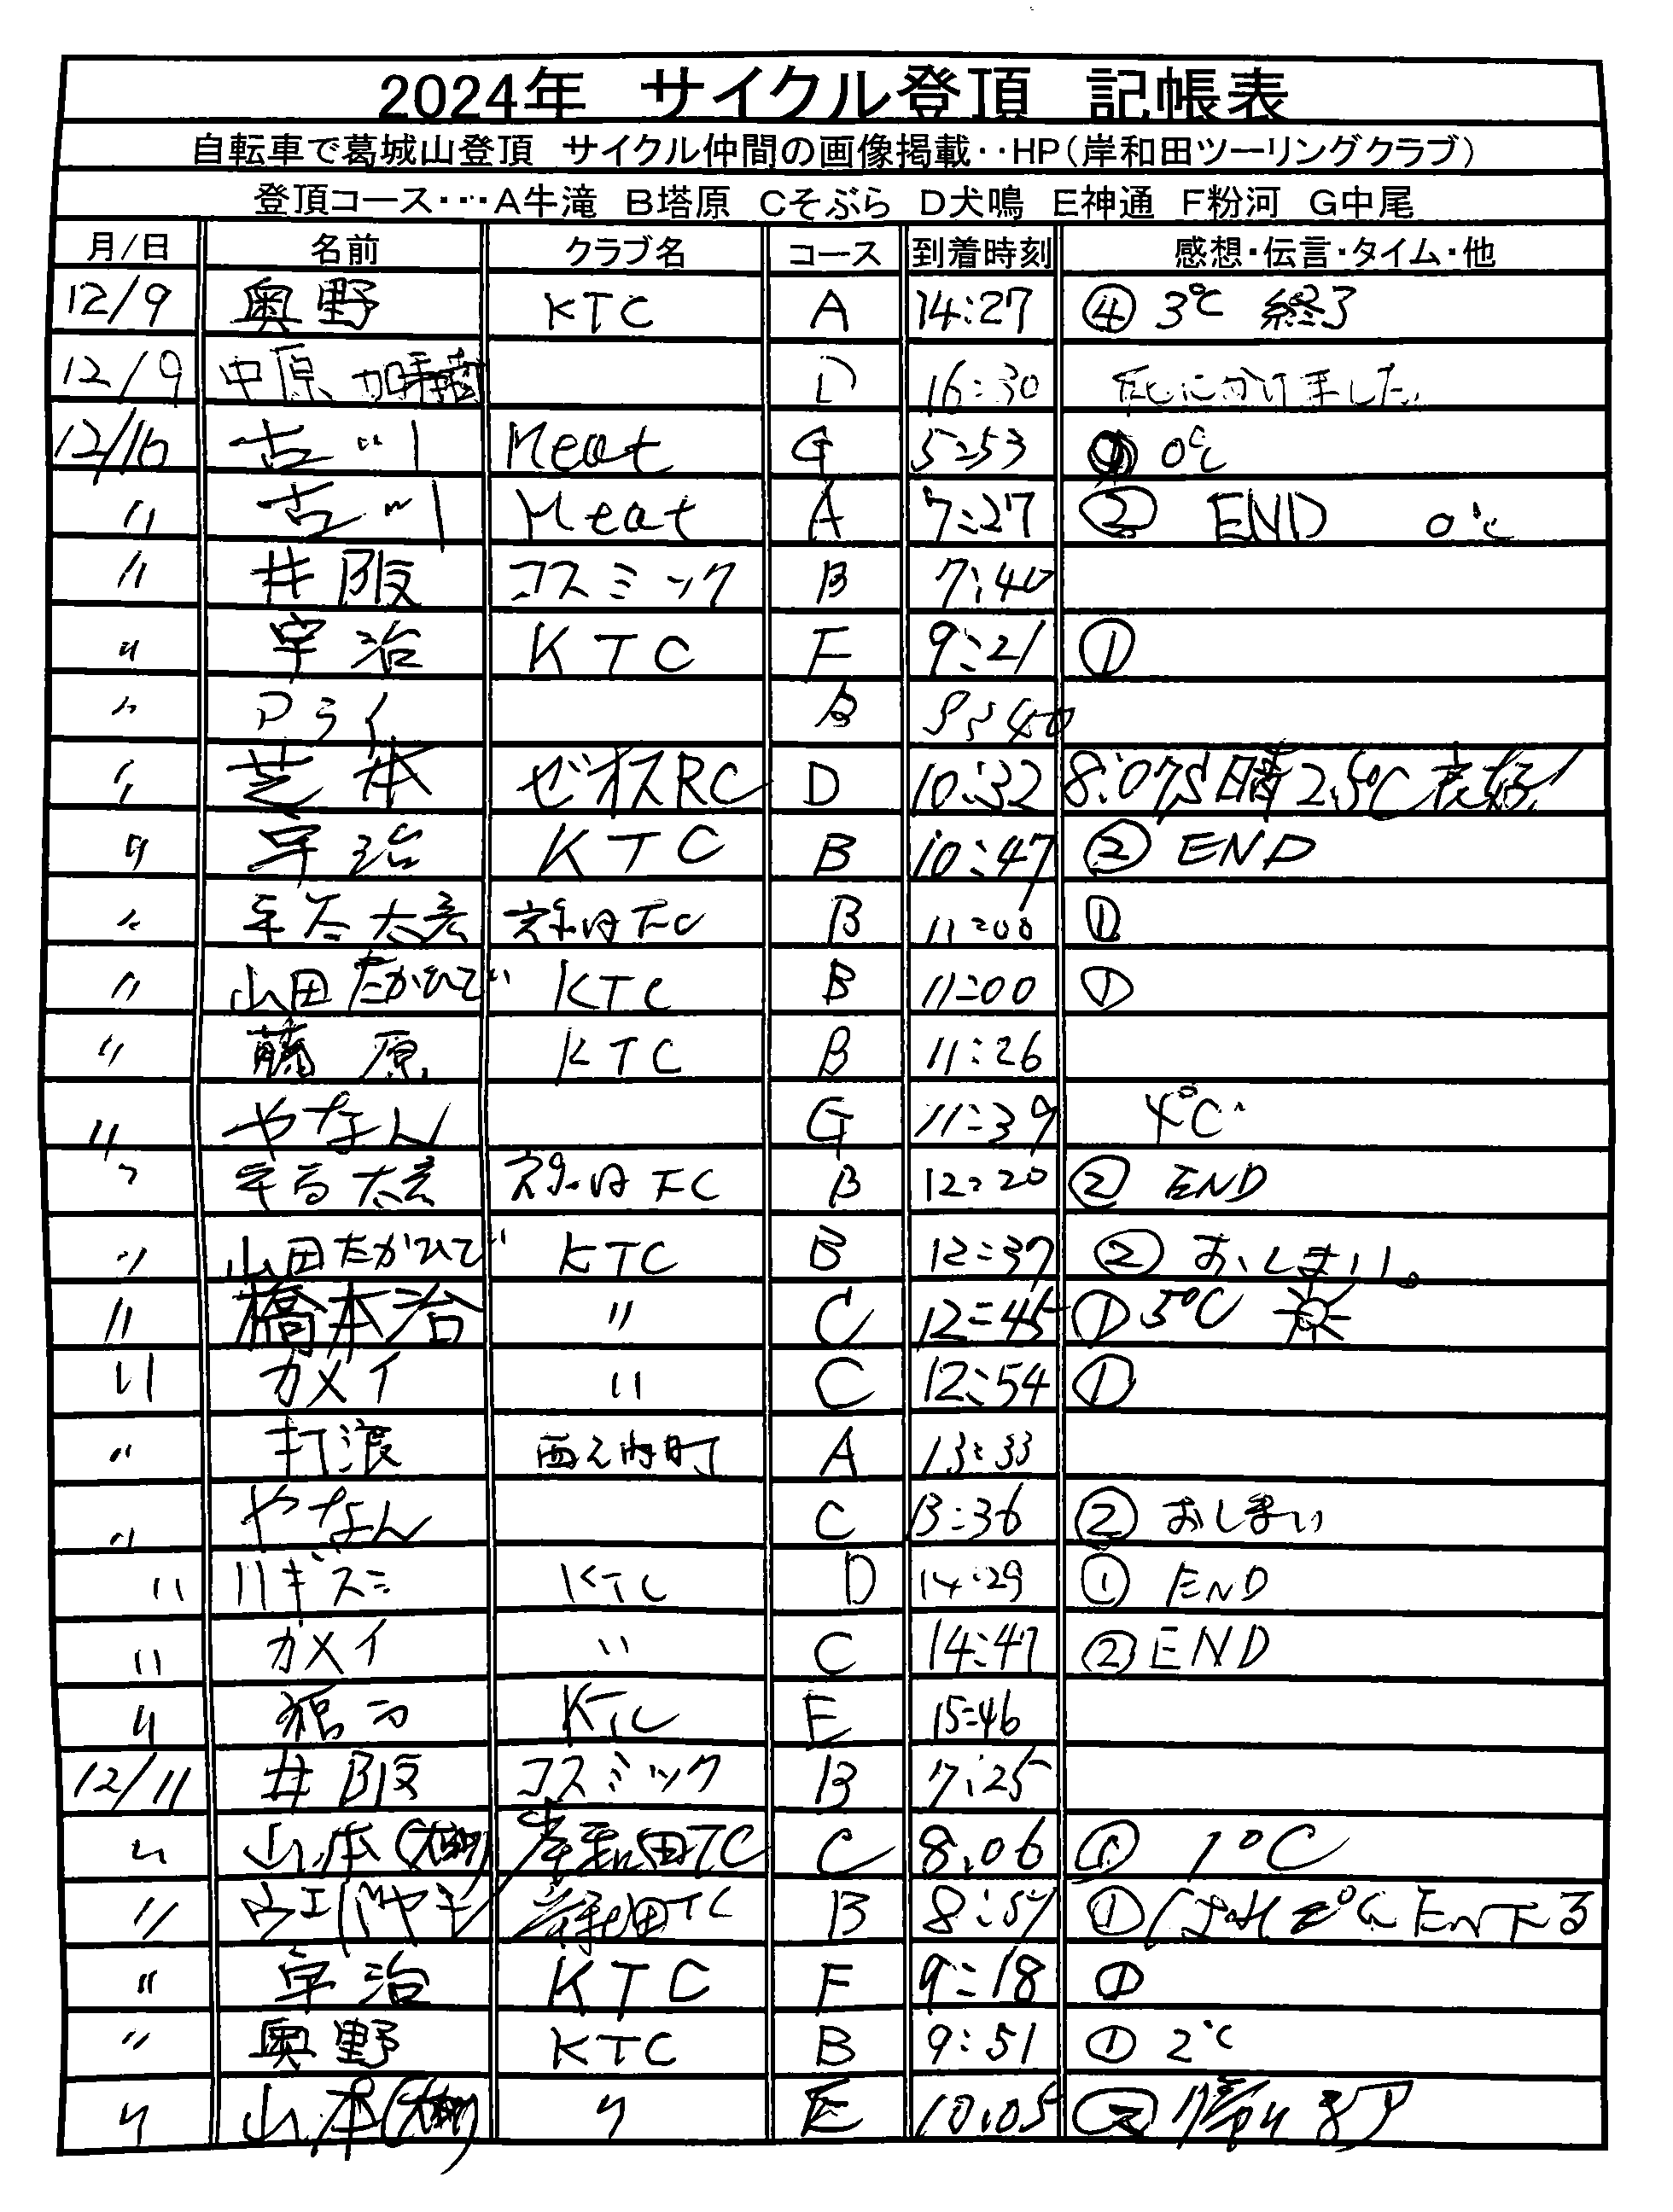 2024年 サイクル登頂 記帳表
自転車で葛城山登頂 サイクル仲間の画像掲載‥HP(岸和田ツーリングクラブ)
登頂コース・・・A牛滝 B塔原 Cそぶら D犬鳴 E神通 F粉河 G中尾
月/日 名前 クラブ名 コース 到着時刻 感想・伝言・タイム・他
12/9 奥野 KTC A 14:27 ④ 3℃ 終了
12/9 中原 D 16:30 死にかけました。
12/10 古川 Meat G 5:53 ① 0℃
〃 古川 Meat A 7:27 ② END 0℃
〃 井阪 コスミック B 7:40
〃 宇治 KTC F 9:21 ①
〃 アライ B
〃 芝本 ゼオスRC D 10:32 晴 2.5℃
〃 宇治 KTC B 10:47 ② END
〃 B 11:00 ①
〃 山田たかひで KTC B 11:00 ①
〃 藤原 KTC B 11:26
〃 やなん G 11:39 4℃
〃 B 12:20 ② END
〃 山田たかひで KTC B 12:37 ② おしまい。
〃 橋本治 〃 C 12:45 ① 5℃
〃 カメイ 〃 C 12:54 ①
〃 打渡 西之内町 A 13:33
〃 やなん C 13:36 ② おしまい
〃 KTC D 14:29 ① END
〃 カメイ 〃 C 14:47 ② END
〃 KTC E 15:46
12/11 井阪 コスミック B 7:25
〃 山本 岸和田TC C 8:06 ① 1℃
〃 岸和田TC B 8:57 ①
〃 宇治 KTC F 9:18 ①
〃 奥野 KTC B 9:51 ① 2℃
〃 山本 〃 E 10:05 ②